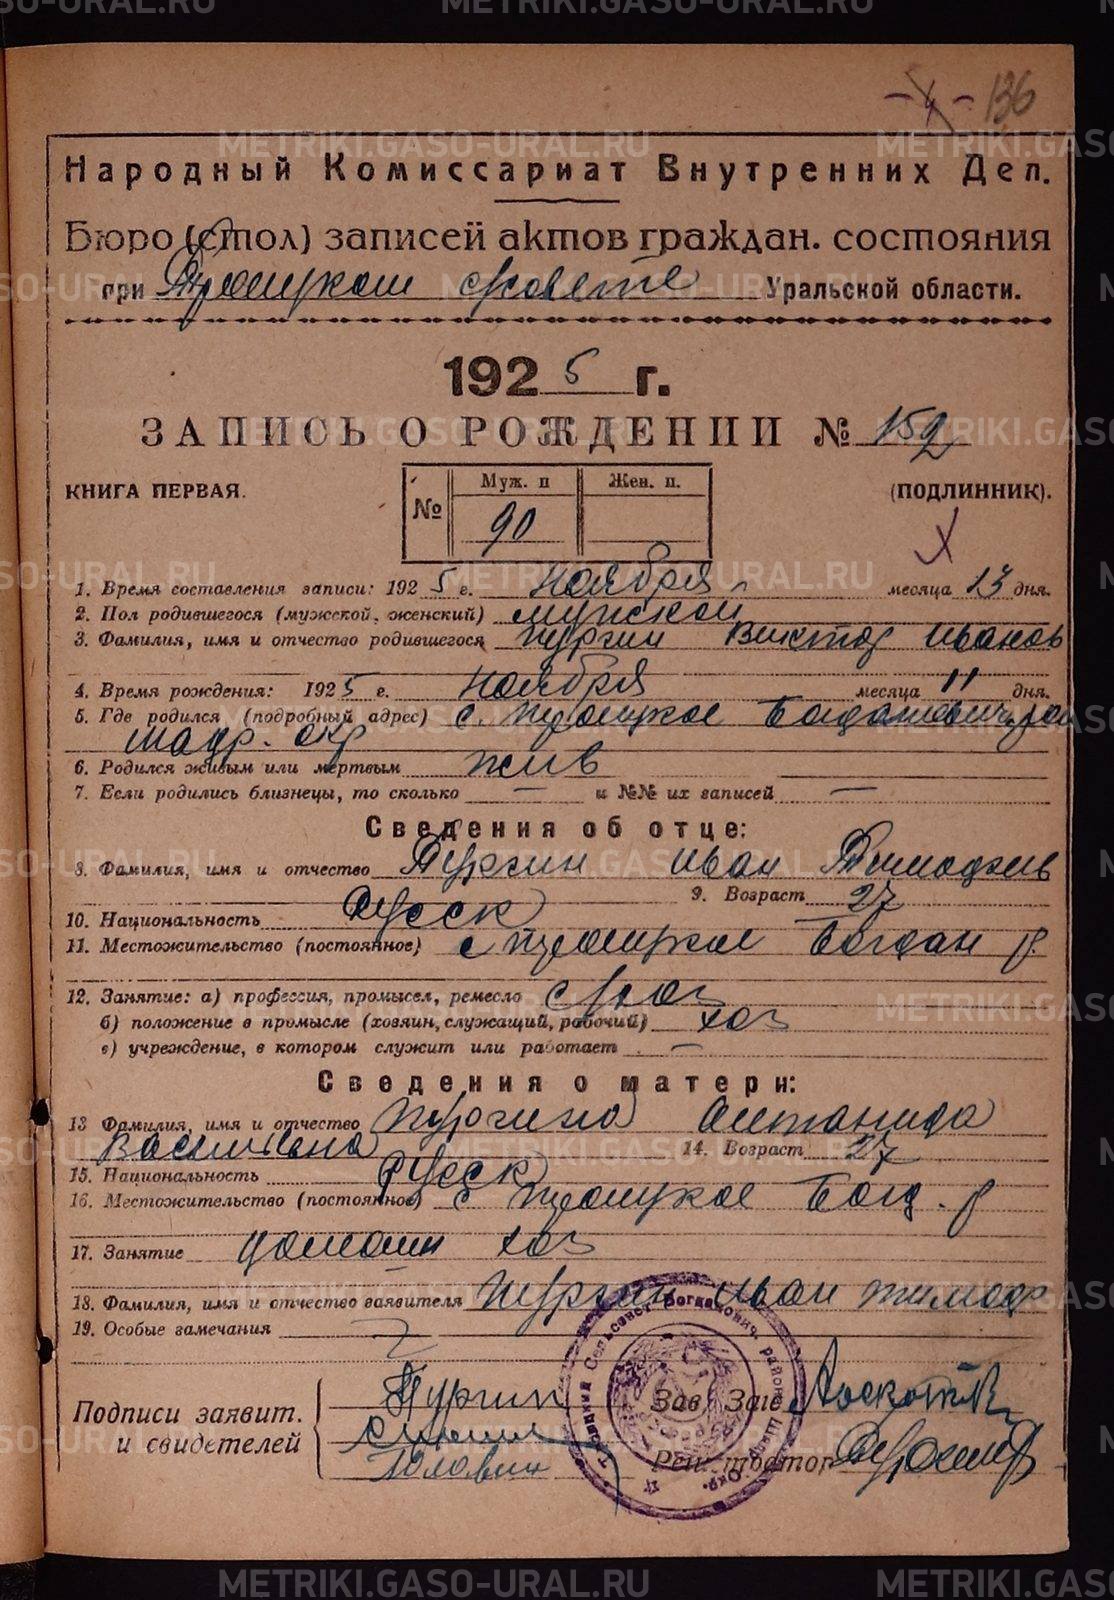 136
Народный Комиссариат Внутренних Дел.
Бюро (стол) записей актов граждан. состояния
при Троицком Совете Уральской области.
1925 г.
ЗАПИСЬ О РОЖДЕНИИ № 152
КНИГА ПЕРВАЯ. № Муж. п Жен. п. (ПОДЛИННИК).
90
1. Время составления записи: 1925 г. Ноября месяца 13 дня.
2. Пол родившегося (мужской, женский) мужской
3. Фамилия, имя и отчество родившегося Пургин Виктор Иванов
4. Время рождения: 1925 г. Ноября месяца 11 дня.
5. Где родился (подробный адрес) с. Троицкое Богдановичу рай
Шадр. окр
6. Родился живым или мертвым жив
7. Если родились близнецы, то сколько — и №№ их записей —
Сведения об отце:
8. Фамилия, имя и отчество Пургин Иван Тимофеев
9. Возраст 27
10. Национальность Русск
11. Местожительство (постоянное) с Троицкое Богдан р.
12. Занятие: а) профессия, промысел, ремесло с/хоз
б) положение в промысле (хозяин, служащий, рабочий) хоз
в) учреждение, в котором служит или работает —
Сведения о матери:
13 Фамилия, имя и отчество Пургина
Васильевна 14. Возраст 27
15. Национальность Русск
16. Местожительство (постоянное) с Троицкое Богд. р
17. Занятие домаши хоз
18. Фамилия, имя и отчество заявителя Пургин Иван Тимоф
19. Особые замечания
Подписи заявит. и свидетелей
Пургин Зав. Загс
Головин Регистратор
Троицкий Сельсовет Богданович. района Шадр. Окр.
METRIKI.GASO-URAL.RU